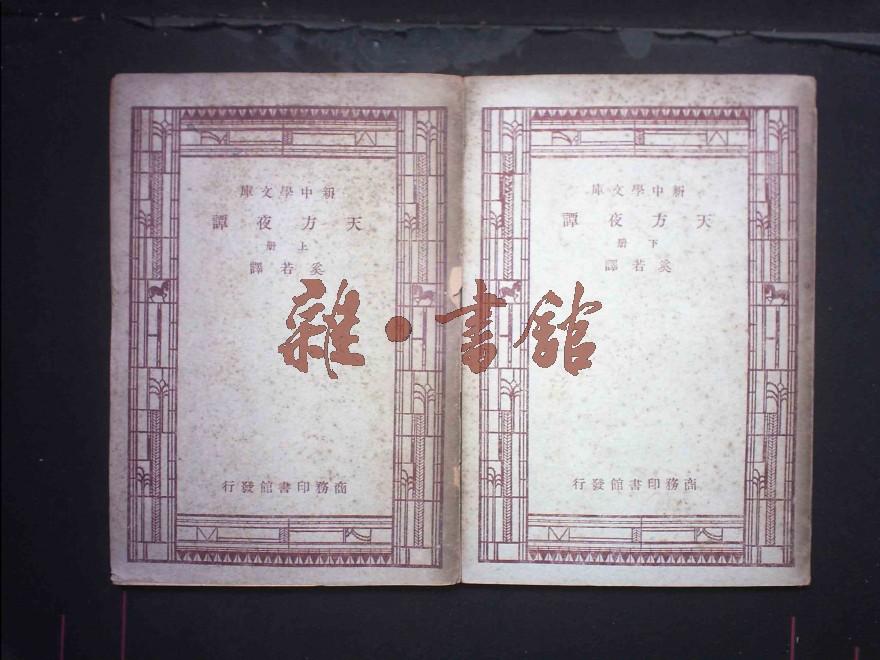 新中學文庫
天方夜譚
上册
奚若譯
商務印書館發行
新中學文庫
天方夜譚
下册
奚若譯
商務印書館發行
雜·書館